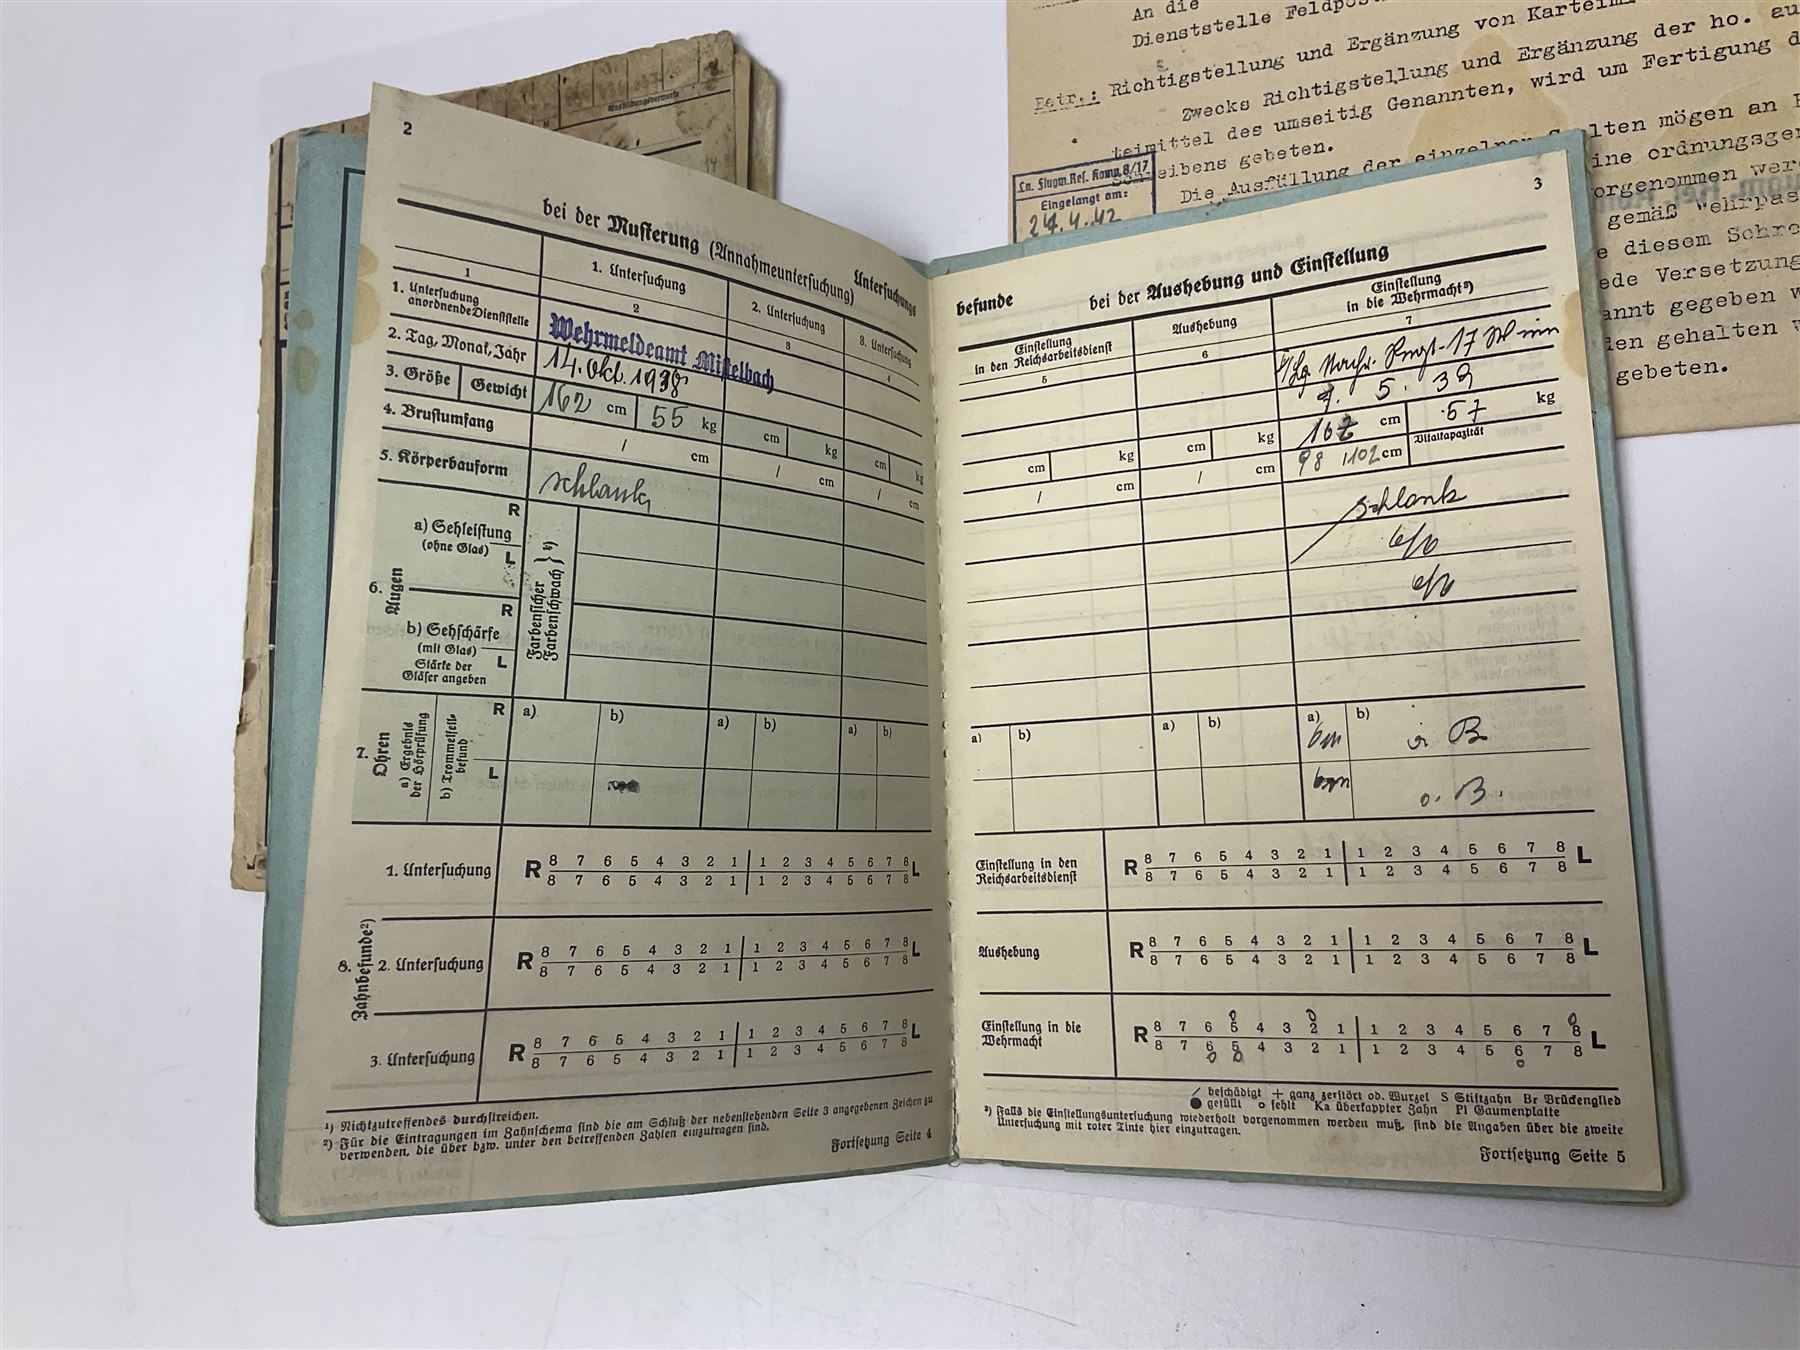 An die
Dienststelle Feldpos
Betr.: Richtigstellung und Ergänzung von Karteimi
Zwecks Richtigstellung und Ergänzung der ho. au
teimittel des umseitig Genannten, wird um Fertigung d
Schreibens gebeten.
Die Ausfüllung der einzelnen Spalten mögen an
ine ordnungsge
orgenommen werd
gemäß Wehrpas
e diesem Schre
ede Versetzung
annt gegeben w
den gehalten w
gebeten.
Ln. Flugm. Res. Komp. 8/17
Eingelangt am:
24.4.42
Ausbildungsvermerk
2
bei der Musterung (Annahmeuntersuchung) Untersuchungs
1. Untersuchung 2. Untersuchung 3. Untersuchung
1 2 3 4
1. Untersuchung anordnende Dienststelle
Wehrmeldeamt Mistelbach
2. Tag, Monat, Jahr 14. Okt. 1938
3. Größe Gewicht 162 cm 55 kg cm kg cm kg
4. Brustumfang / cm / cm / cm
5. Körperbauform schlank
6. Augen
a) Sehleistung (ohne Glas) R L
b) Sehschärfe (mit Glas) Stärke der Gläser angeben R L
Farbensicher Farbenschwach } ¹)
7. Ohren
a) Ergebnis der Hörprüfung
b) Trommelfellbefund
R L
a) b) a) b) a) b)
8. Zahnbefunde²)
1. Untersuchung R 8 7 6 5 4 3 2 1 1 2 3 4 5 6 7 8 L
8 7 6 5 4 3 2 1 1 2 3 4 5 6 7 8
2. Untersuchung R 8 7 6 5 4 3 2 1 1 2 3 4 5 6 7 8 L
8 7 6 5 4 3 2 1 1 2 3 4 5 6 7 8
3. Untersuchung R 8 7 6 5 4 3 2 1 1 2 3 4 5 6 7 8 L
8 7 6 5 4 3 2 1 1 2 3 4 5 6 7 8
¹) Nichtzutreffendes durchstreichen.
²) Für die Eintragungen im Zahnschema sind die am Schluß der nebenstehenden Seite 3 angegebenen Zeichen zu
verwenden, die über bzw. unter den betreffenden Zahlen einzutragen sind.
Fortsetzung Seite 4
3
befunde bei der Aushebung und Einstellung
Einstellung in den Reichsarbeitsdienst Aushebung Einstellung in die Wehrmacht³)
5 6 7
17 Wien
7. 5. 39
cm kg cm kg 162 cm 57 kg
/ cm / cm 98 / 102 cm Vitalkapazität
schlank
6/6
6/6
a) b) a) b) a) b)
6m o B
6m o. B.
Einstellung in den Reichsarbeitsdienst R 8 7 6 5 4 3 2 1 1 2 3 4 5 6 7 8 L
8 7 6 5 4 3 2 1 1 2 3 4 5 6 7 8
Aushebung R 8 7 6 5 4 3 2 1 1 2 3 4 5 6 7 8 L
8 7 6 5 4 3 2 1 1 2 3 4 5 6 7 8
Einstellung in die Wehrmacht R 8 7 6 5 4 3 2 1 1 2 3 4 5 6 7 8 L
8 7 6 5 4 3 2 1 1 2 3 4 5 6 7 8
/ beschädigt + ganz zerstört od. Wurzel S Stiftzahn Br Brückenglied
● gefüllt o fehlt Ka überkappter Zahn Pl Gaumenplatte
³) Falls die Einstellungsuntersuchung wiederholt vorgenommen werden muß, sind die Angaben über die zweite
Untersuchung mit roter Tinte hier einzutragen.
Fortsetzung Seite 5